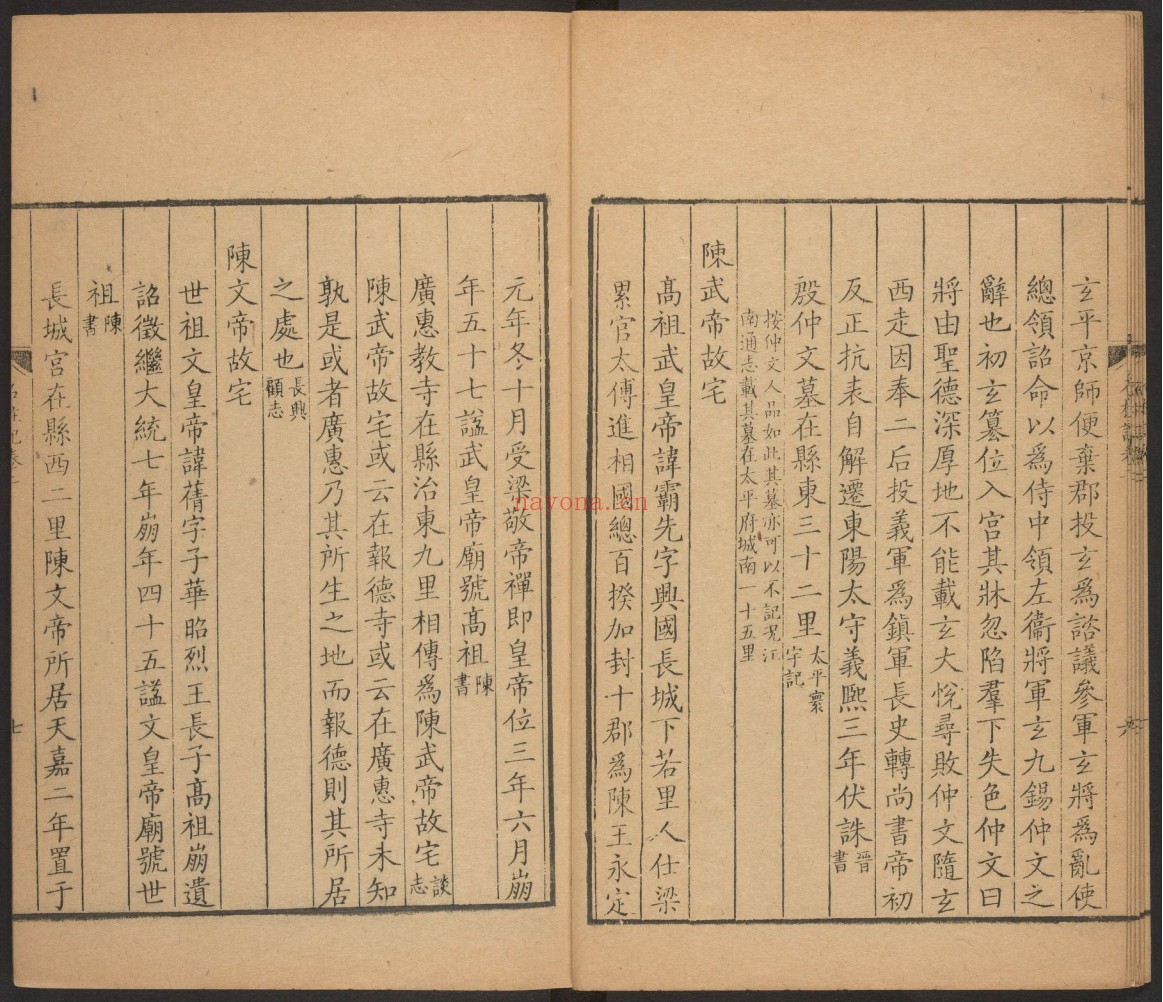 玄平京師便棄郡投玄爲諮議參軍玄將爲亂使
總領詔命以爲侍中領左衞將軍玄九錫仲文之
辭也初玄篡位入宮其牀忽陷羣下失色仲文曰
將由聖德深厚地不能載玄大悅尋敗仲文隨玄
西走因奉二后投義軍爲鎮軍長史轉尚書帝初
反正抗表自解遷東陽太守義熙三年伏誅晉書
殷仲文墓在縣東三十二里太平寰宇記
按仲文人品如此其墓亦可以不記况江
南通志載其墓在太平府城南一十五里
陳武帝故宅
高祖武皇帝諱霸先字興國長城下若里人仕梁
累官太傅進相國總百揆加封十郡爲陳王永定
六
元年冬十月受梁敬帝禪即皇帝位三年六月崩
年五十七謚武皇帝廟號高祖陳書
廣惠教寺在縣治東九里相傳爲陳武帝故宅談志
陳武帝故宅或云在報德寺或云在廣惠寺未知
孰是或者廣惠乃其所生之地而報德則其所居
之處也長興顧志
陳文帝故宅
世祖文皇帝諱蒨字子華昭烈王長子高祖崩遺
詔徵繼大統七年崩年四十五謚文皇帝廟號世
祖陳書
長城宮在縣西二里陳文帝所居天嘉二年置于
七
nayona.cn